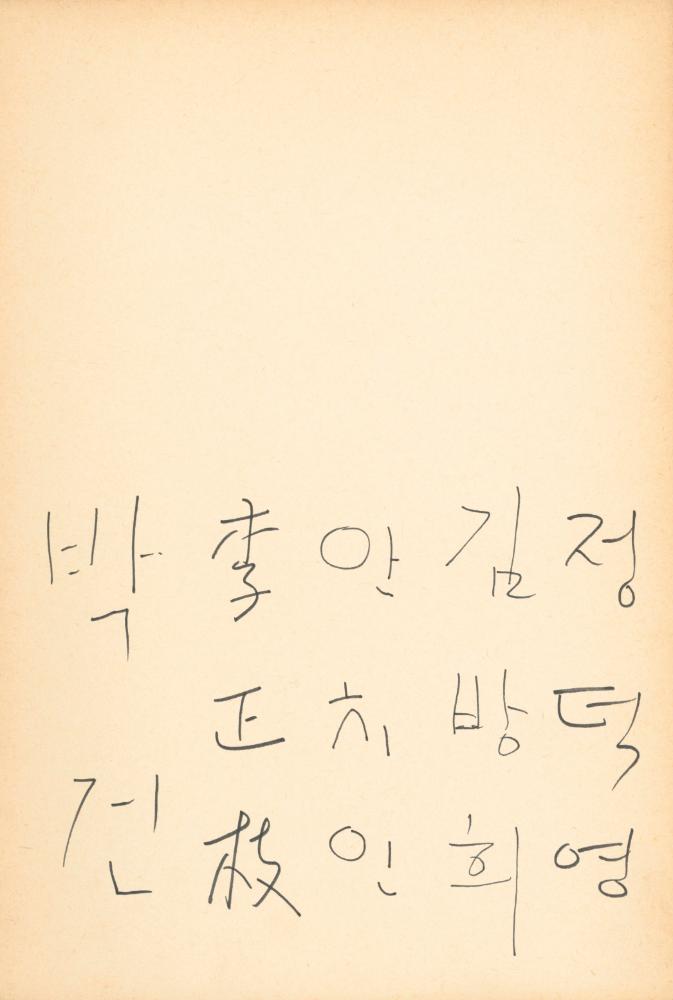 정덕영
김방희
안치인
李正枝
박건